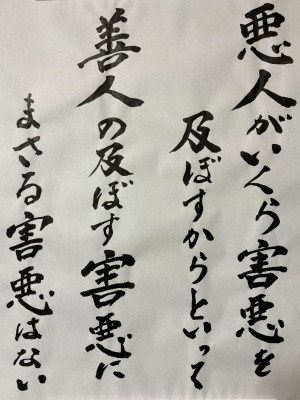 悪人がいくら害悪を
及ぼすからといって
善人の及ぼす害悪に
まさる害悪はない